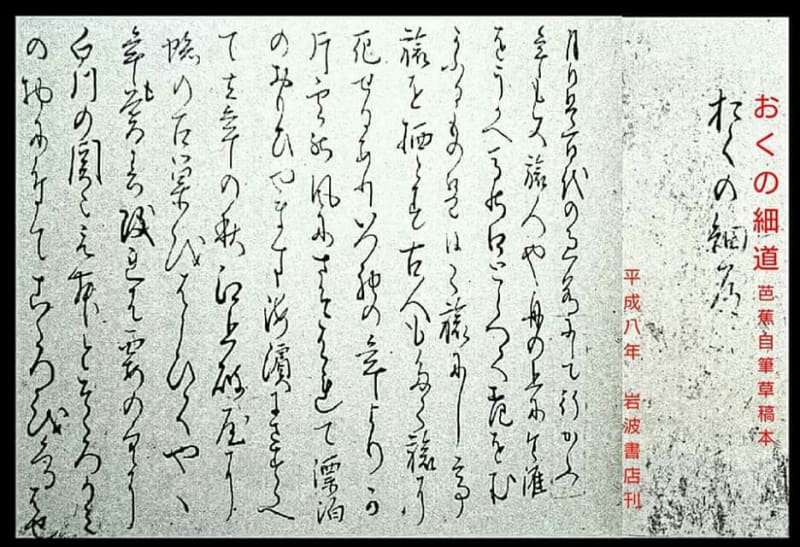 おくの細道 芭蕉自筆草稿本
平成八年 岩波書店刊
おくの細道
月日は百代の過客にして行かふ
年も又旅人也舟の上に生涯
をうかへ馬の口とらへて老をむ
かふるものは日々旅にして
旅を栖とす古人も多く旅に
死せるありいつれの年よりか
片雲の風にさそはれて漂泊
のおもひやます海濱にさすらへ
て去年の秋江上破屋に
蜘の古巣をはらひてやゝ
年も暮春改れは霞の空に
白川の関こえむとそゝろかみ
の物に付てこゝろをくるはせ